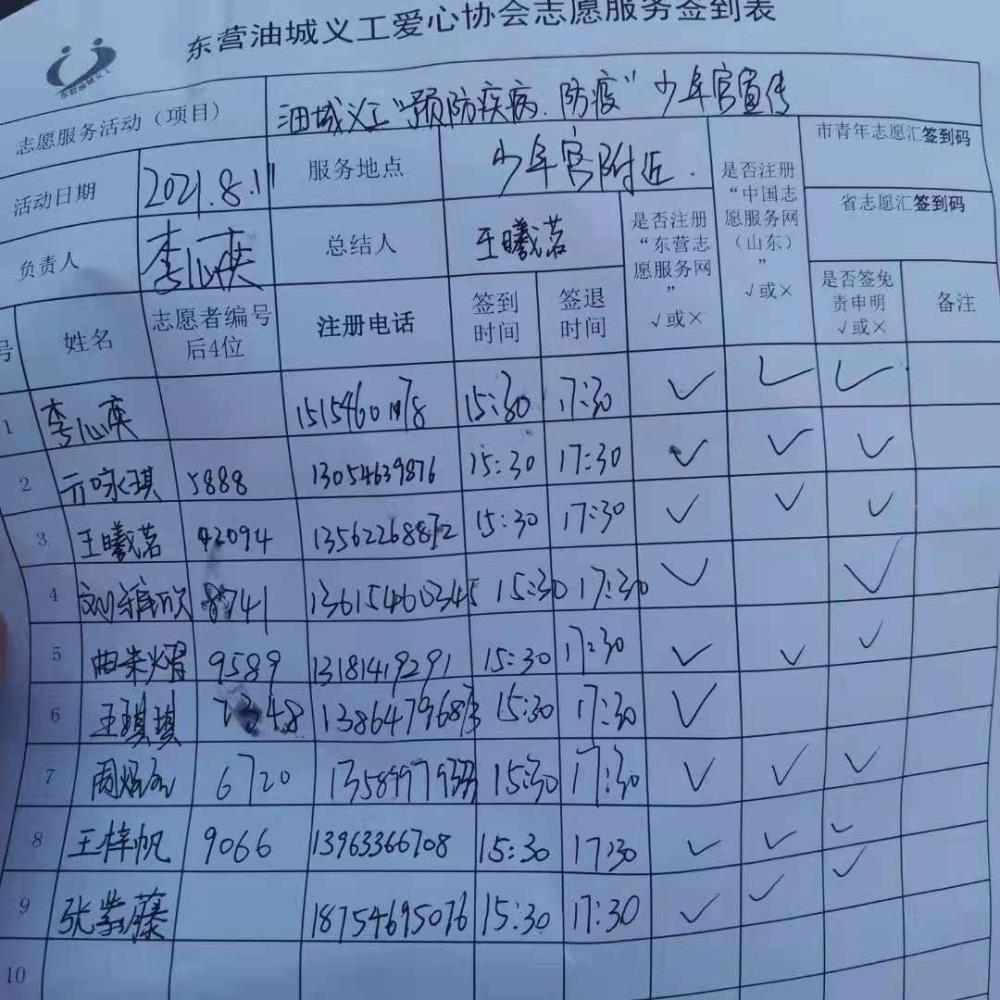 东营油城义工爱心协会志愿服务签到表
东营油城义工
志愿服务活动（项目） 油城义工“预防疾病、防疫”少年宫宣传
活动日期 2021.8.11 服务地点 少年宫附近.
负责人 李心 总结人 王曦茗
是否注册“东营志愿服务网” √或×
是否注册“中国志愿服务网（山东）” √或×
市青年志愿汇签到码
省志愿汇签到码
号 姓名 志愿者编号后4位 注册电话 签到时间 签退时间 是否签免责申明 √或× 备注
1 李心 15:30 17:30 ✓ ✓ ✓
2 亓咏琪 5888 13054639876 15:30 17:30 ✓ ✓ ✓
3 王曦茗 42094 15:30 17:30 ✓ ✓ ✓
4 刘 8741 13615460345 15:30 17:30 ✓ ✓
5 曲 9589 13181419291 15:30 17:30 ✓ ✓ ✓
6 王琪琪 15:30 17:30 ✓
7 周 6720 15:30 17:30 ✓ ✓ ✓
8 王梓帆 9066 13963366708 15:30 17:30 ✓ ✓ ✓
9 张紫藤 18754695076 15:30 17:30 ✓ ✓ ✓
10